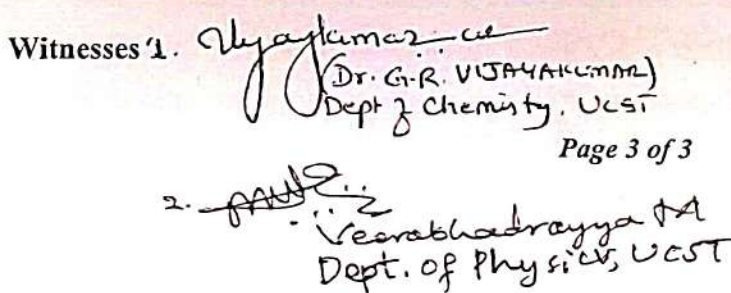 Witnesses 1. Vijaykumar
(Dr. G.R. VIJAYAKUMAR)
Dept of Chemisty, UCST
Page 3 of 3
2.
Veerabhadrayya M
Dept. of Physics, UCST